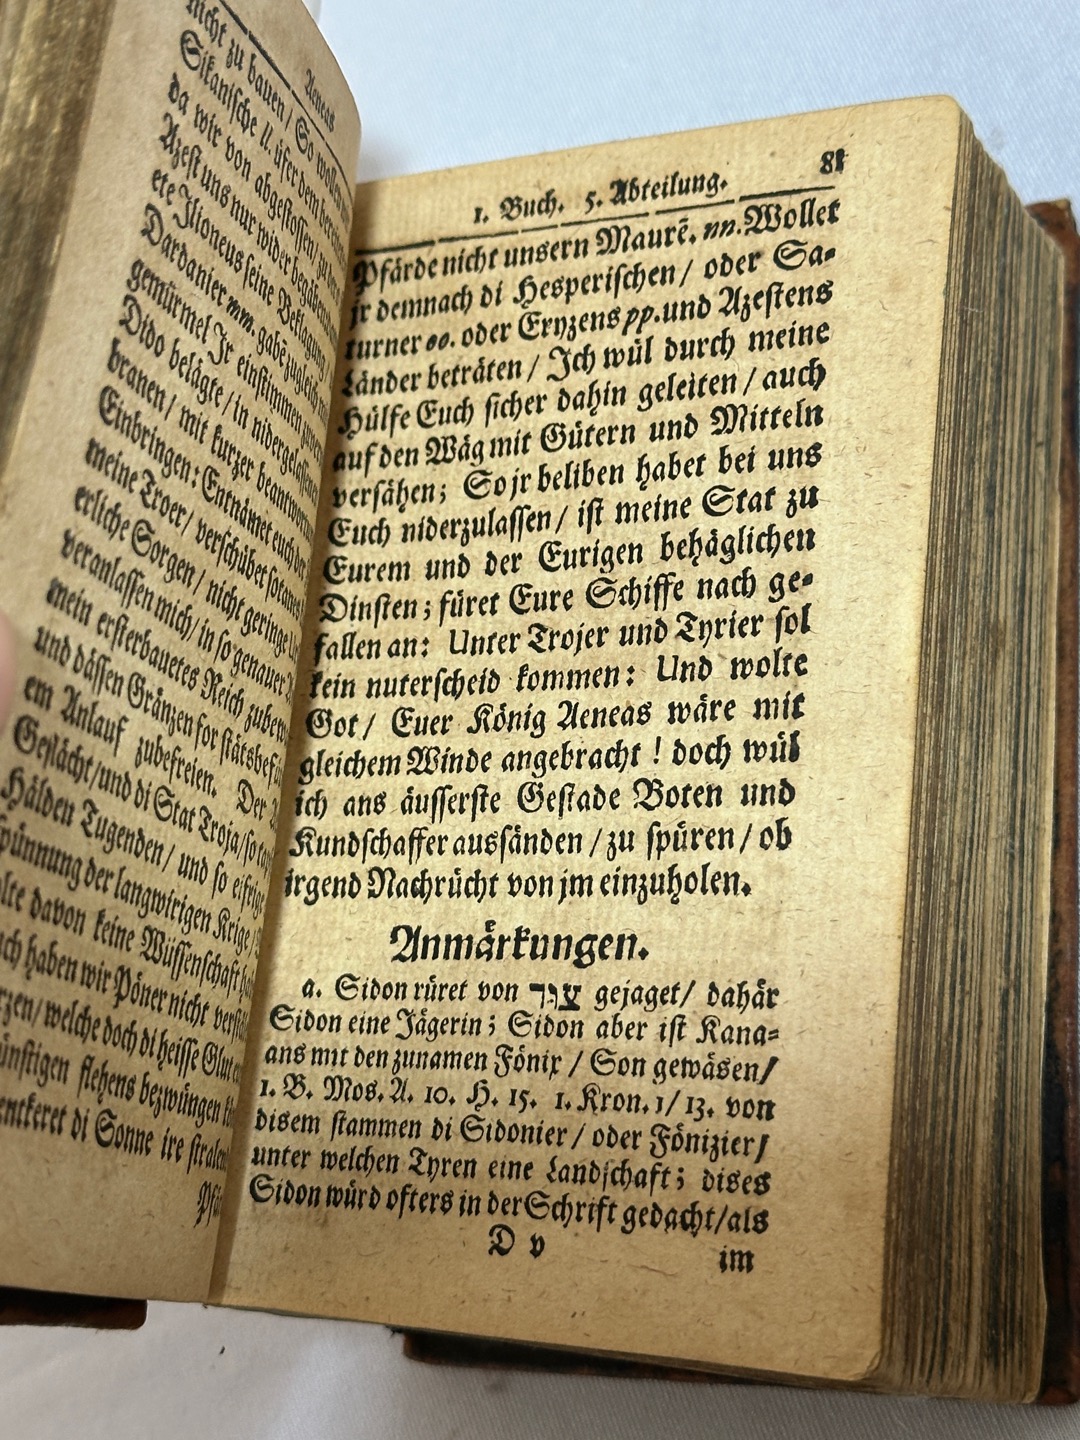 Aeneas
nicht zu bauen / So wollen
Sikanische ll. üfer dem bereiten
da wir von abgestossen /
Azest uns nur wider begäben
ete Jlioneus seine Beklagung /
Dardanier mm. gabē zugleich
gemürmel Jr einstimmen
Dido belägte / in nidergelassenen
branen / mit kurzer beantwortung
Einbringen: Entnämet euch der
meine Troer / verschübet sotanes
erliche Sorgen / nicht geringe
veranlassen mich / in so genauer
mein ersterbauetes Reich
und dässen Gränzen for
em Anlauf zubefreien. Der
Geslächt / und di Stat Troja / so
Hälden Tugenden / und so eifrige
spünnung der langwirigen Krige /
olte davon keine Wüssenschaft
ch haben wir Pöner nicht
rzen / welche doch di heisse Glut
ünstigen flehens bezwüngen
entkeret di Sonne ire
Pfär
1. Buch. 5. Abteilung. 81
Pfärde nicht unsern Maurē. nn. Wollet
jr demnach di Hesperischen / oder Sa-
turner oo. oder Eryzens pp. und Azestens
Länder beträten / Jch wül durch meine
Hülfe Euch sicher dahin geleiten / auch
auf den Wäg mit Gütern und Mitteln
versähen; So jr beliben habet bei uns
Euch niderzulassen / ist meine Stat zu
Eurem und der Eurigen behäglichen
Dinsten; füret Eure Schiffe nach ge-
fallen an: Unter Trojer und Tyrier sol
kein nuterscheid kommen: Und wolte
Got / Euer König Aeneas wäre mit
gleichem Winde angebracht ! doch wül
ich ans äusserste Gestade Boten und
Kundschaffer aussänden / zu spüren / ob
irgend Nachrücht von jm einzuholen.
Anmärkungen.
a. Sidon rüret von צוד gejaget / dahär
Sidon eine Jägerin; Sidon aber ist Kana-
ans mit den zunamen Fönix / Son gewäsen /
1. B. Mos. A. 10. H. 15. 1. Kron. 1 / 13. von
disem stammen di Sidonier / oder Fönizier /
unter welchen Tyren eine Landschaft; dises
Sidon würd ofters in der Schrift gedacht / als
D v im